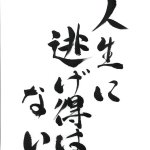 人生に
逃げ得は
ない